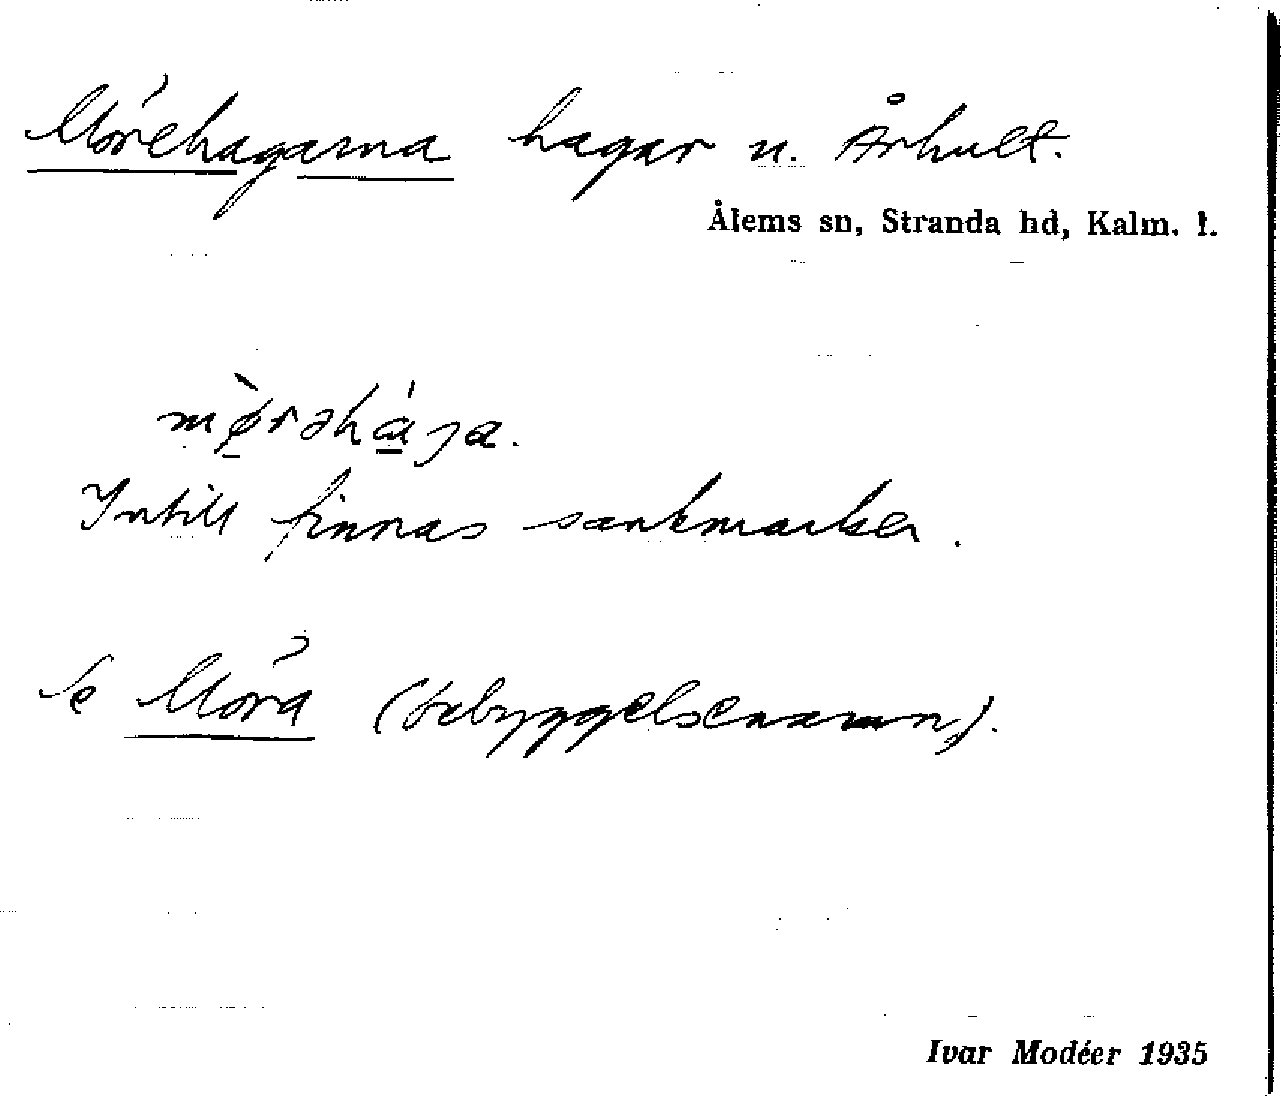 Mörehagarna hagar n. Århult.
Ålems sn, Stranda hd, Kalm. l.
mø̀rəhága.
Intill finnas sankmarker.
Se Möra (bebyggelsenamn).
Ivar Modéer 1935